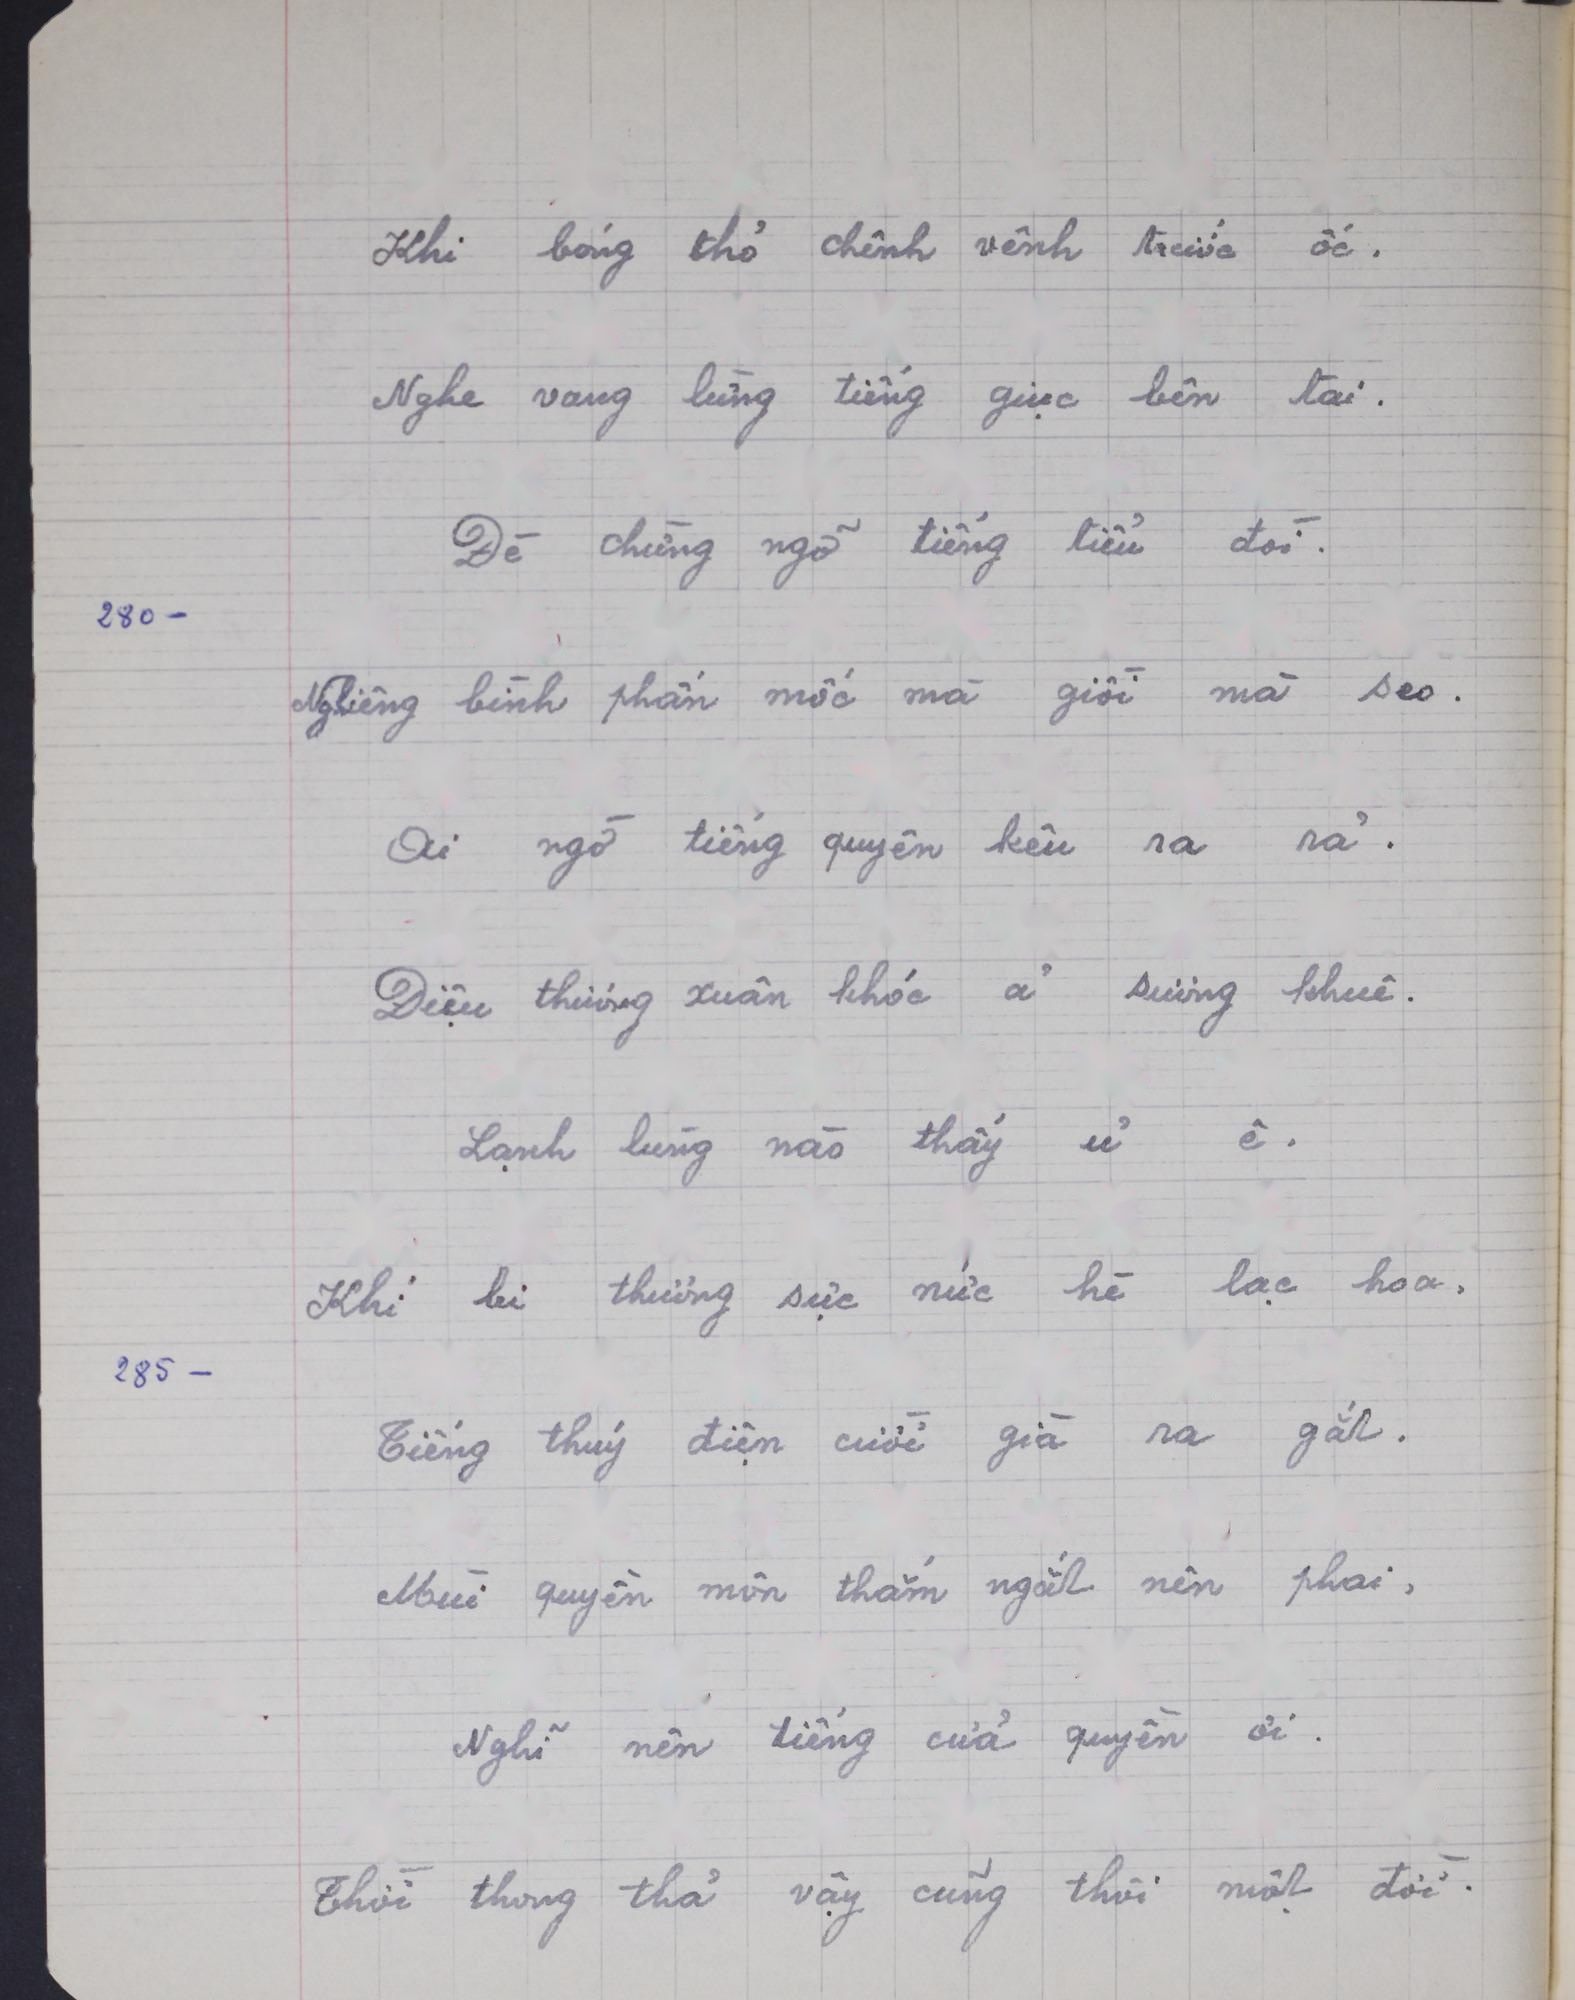 Khi bóng thỏ chênh vênh trước ốc.
Nghe vang lừng tiếng giục bên tai.
Dè chừng ngỡ tiếng tiểu đòi.
280 -
Nghiêng bình phấn mốc mà giồi mà seo.
Ai ngờ tiếng quyên kêu ra rả.
Điệu thương xuân khóc ả sương khuê.
Lạnh lùng nào thấy ủ ê.
Khí bi thương sực nức hè lạc hoa,
285 -
Tiếng thuý điện cười già ra gắt.
Mùi quyền môn thắm ngắt nên phai,
Nghĩ nên tiếng cửa quyền ôi.
Thời thong thả vậy cũng thôi một đời.